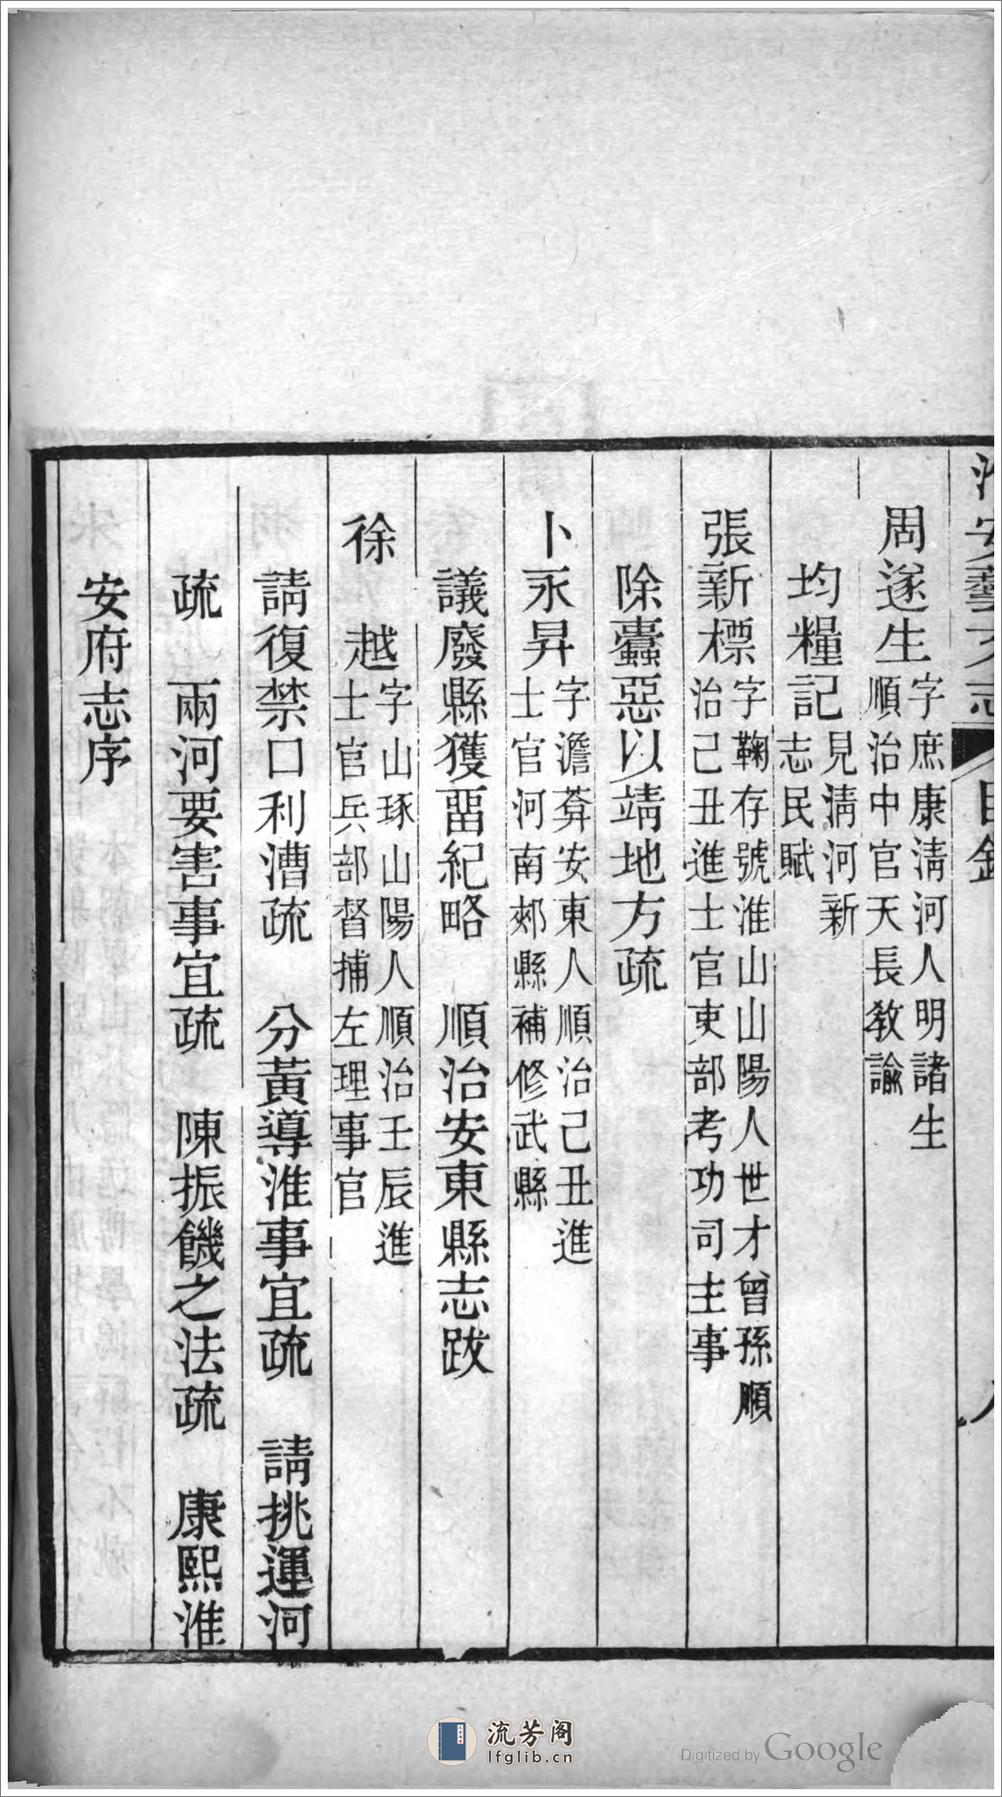 淮安藝文志 目錄 八
周遂生字庶康淸河人明諸生
順治中官天長敎諭
均糧記見淸河新
志民賦
張新標字鞠存號淮山山陽人世才曾孫順
治己丑進士官吏部考功司主事
除蠹惡以靖地方疏
卜永昇字澹菴安東人順治己丑進
士官河南郟縣補修武縣
議廢縣獲畱紀略 順治安東縣志跋
徐 越字山琢山陽人順治壬辰進
士官兵部督捕左理事官
請復禁口利漕疏 分黃導淮事宜疏 請挑運河
疏 兩河要害事宜疏 陳振饑之法疏 康熙淮
安府志序
流芳阁
lfglib.cn
Digitized by Google